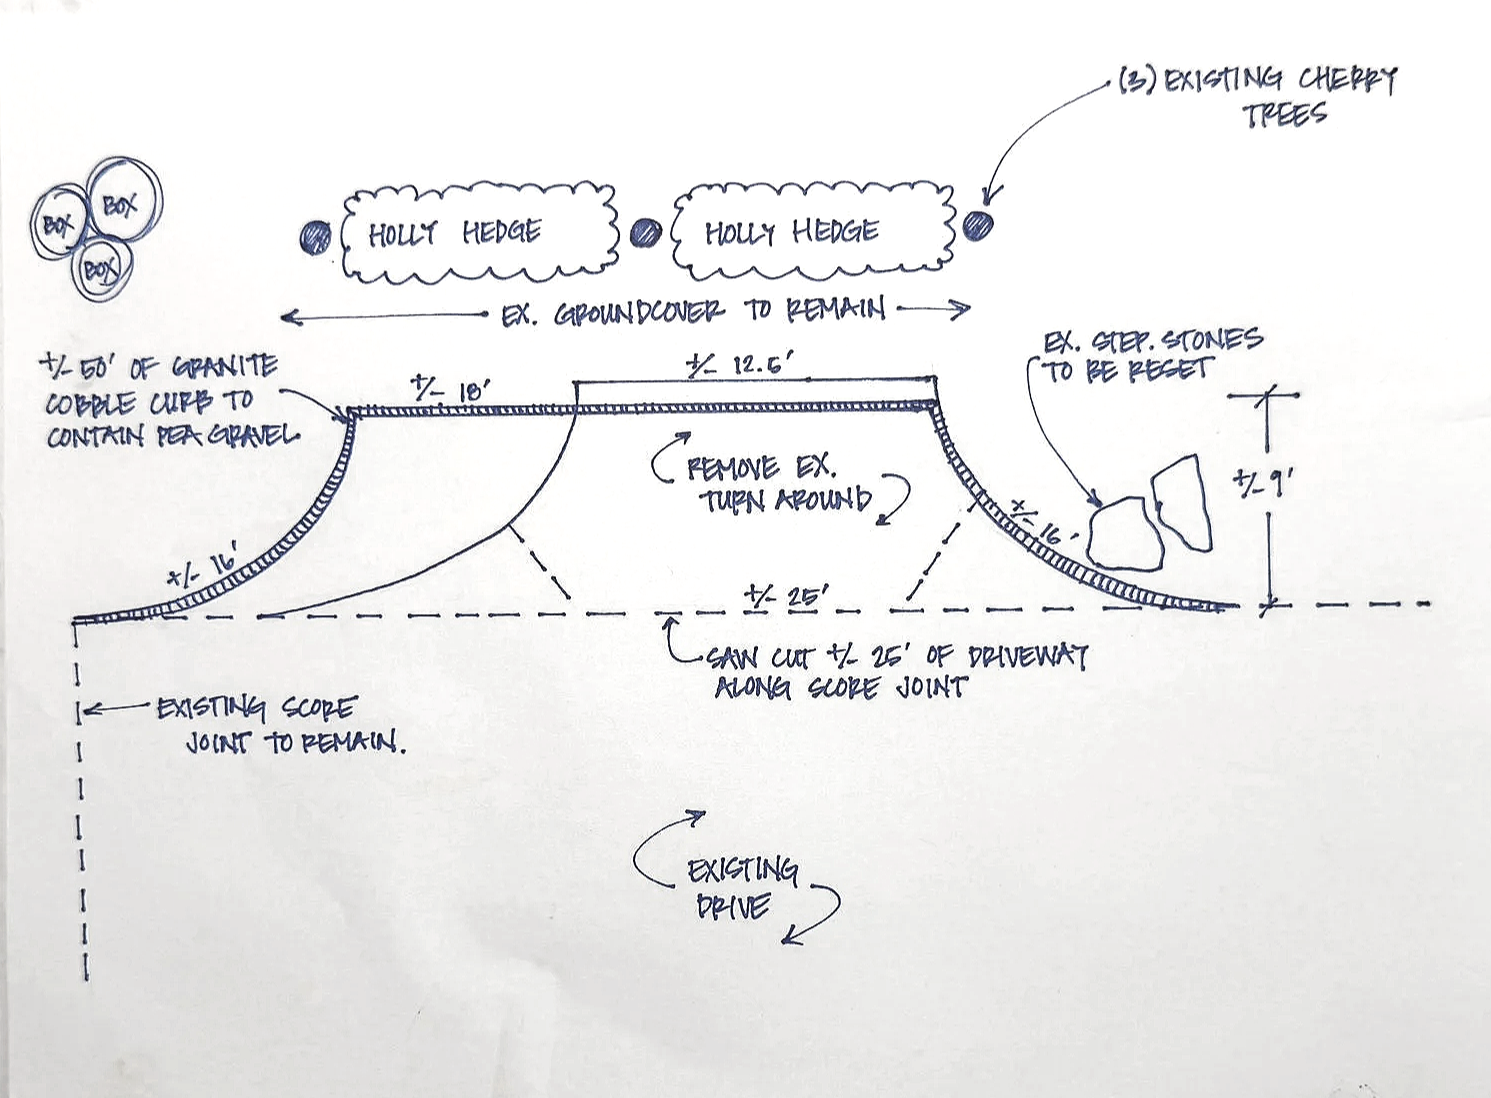 (3) EXISTING CHERRY
TREES
BOX
BOX
BOX
HOLLY HEDGE
HOLLY HEDGE
EX. GROUNDCOVER TO REMAIN
EX. STEP. STONES
TO BE RESET
+/- 50' OF GRANITE
COBBLE CURB TO
CONTAIN PEA GRAVEL
+/- 18'
+/- 12.5'
REMOVE EX.
TURN AROUND
+/- 9'
+/- 16'
+/- 16'
+/- 25'
SAW CUT +/- 25' OF DRIVEWAY
ALONG SCORE JOINT
EXISTING SCORE
JOINT TO REMAIN.
EXISTING
DRIVE